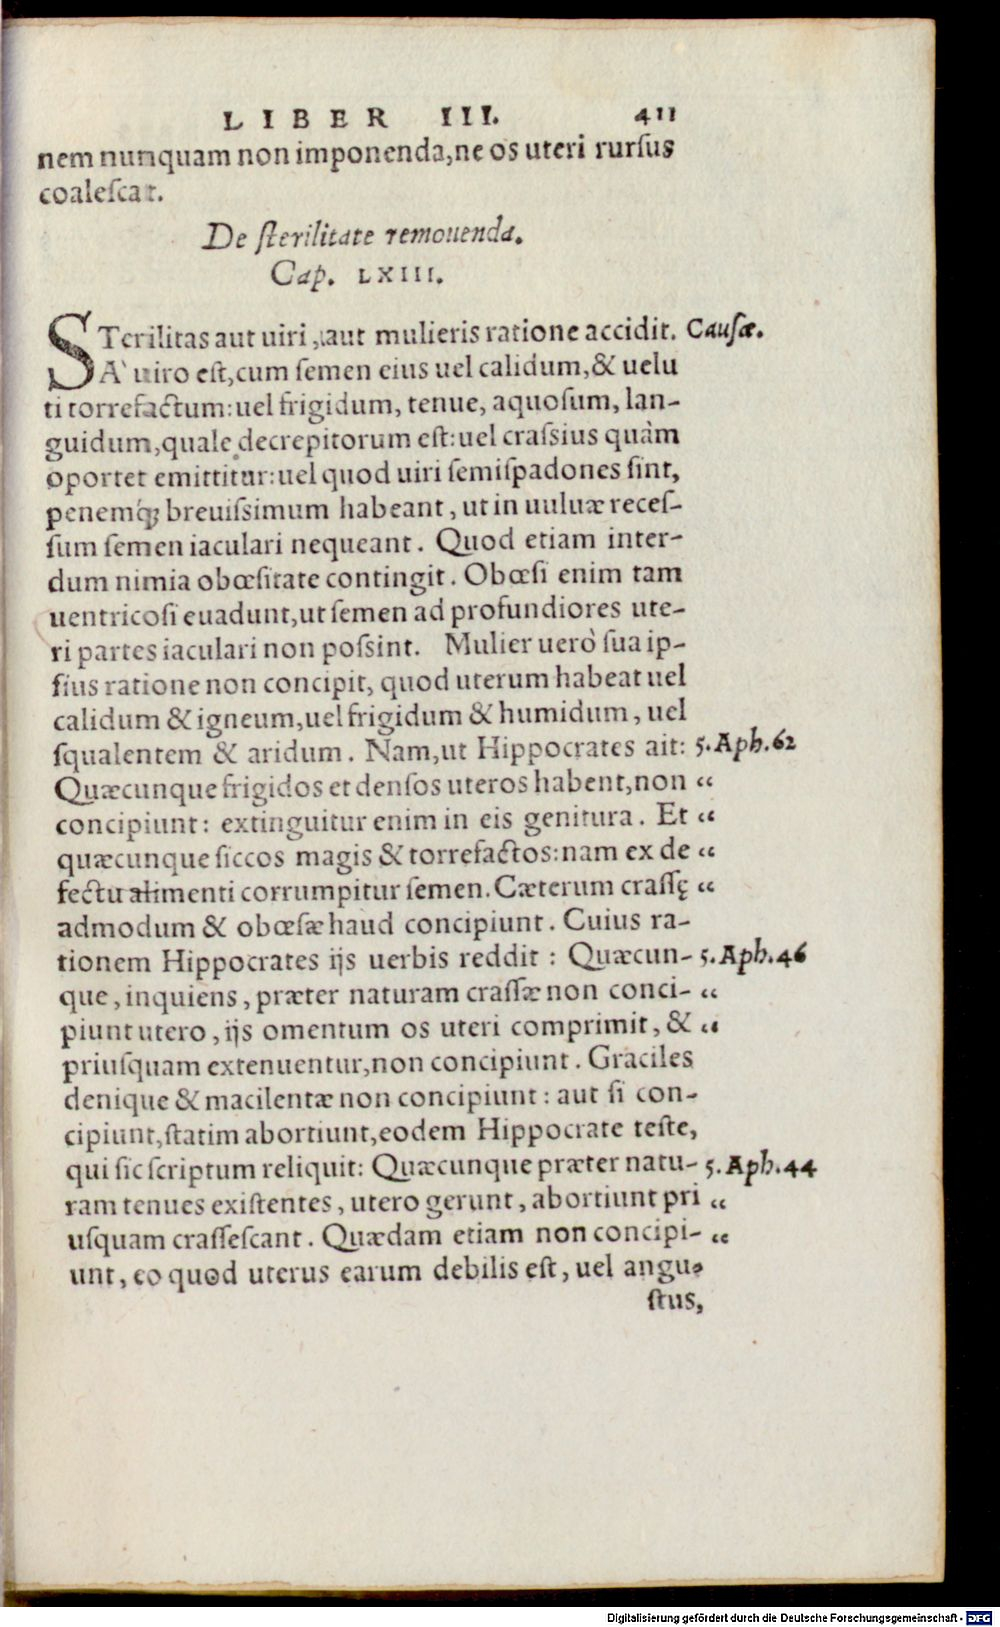 LIBER III. 411
nem nunquam non imponenda, ne os uteri rursus
coalescat.
De sterilitate remouenda.
Cap. LXIII.
STerilitas aut uiri, aut mulieris ratione accidit. Causæ.
A' uiro est, cum semen eius uel calidum, & uelu
ti torrefactum: uel frigidum, tenue, aquosum, lan-
guidum, quale decrepitorum est: uel crassius quàm
oportet emittitur: uel quod uiri semispadones sint,
penemq́; breuissimum habeant, ut in uuluæ reces-
sum semen iaculari nequeant. Quod etiam inter-
dum nimia obœsitate contingit. Obœsi enim tam
uentricosi euadunt, ut semen ad profundiores ute-
ri partes iaculari non possint. Mulier uerò sua ip-
sius ratione non concipit, quod uterum habeat uel
calidum & igneum, uel frigidum & humidum, uel
squalentem & aridum. Nam, ut Hippocrates ait: 5. Aph. 62
Quæcunque frigidos et densos uteros habent, non “
concipiunt: extinguitur enim in eis genitura. Et “
quæcunque siccos magis & torrefactos: nam ex de “
fectu alimenti corrumpitur semen. Cæterum crassę “
admodum & obœsæ haud concipiunt. Cuius ra-
tionem Hippocrates ijs uerbis reddit: Quæcun- 5. Aph. 46
que, inquiens, præter naturam crassæ non conci- “
piunt utero, ijs omentum os uteri comprimit, & “
priusquam extenuentur, non concipiunt. Graciles
denique & macilentæ non concipiunt: aut si con-
cipiunt, statim abortiunt, eodem Hippocrate teste,
qui sic scriptum reliquit: Quæcunque præter natu- 5. Aph. 44
ram tenues existentes, utero gerunt, abortiunt pri “
usquam crassescant. Quædam etiam non concipi- “
unt, eo quod uterus earum debilis est, uel angu-
stus,
Digitalisierung gefördert durch die Deutsche Forschungsgemeinschaft - DFG